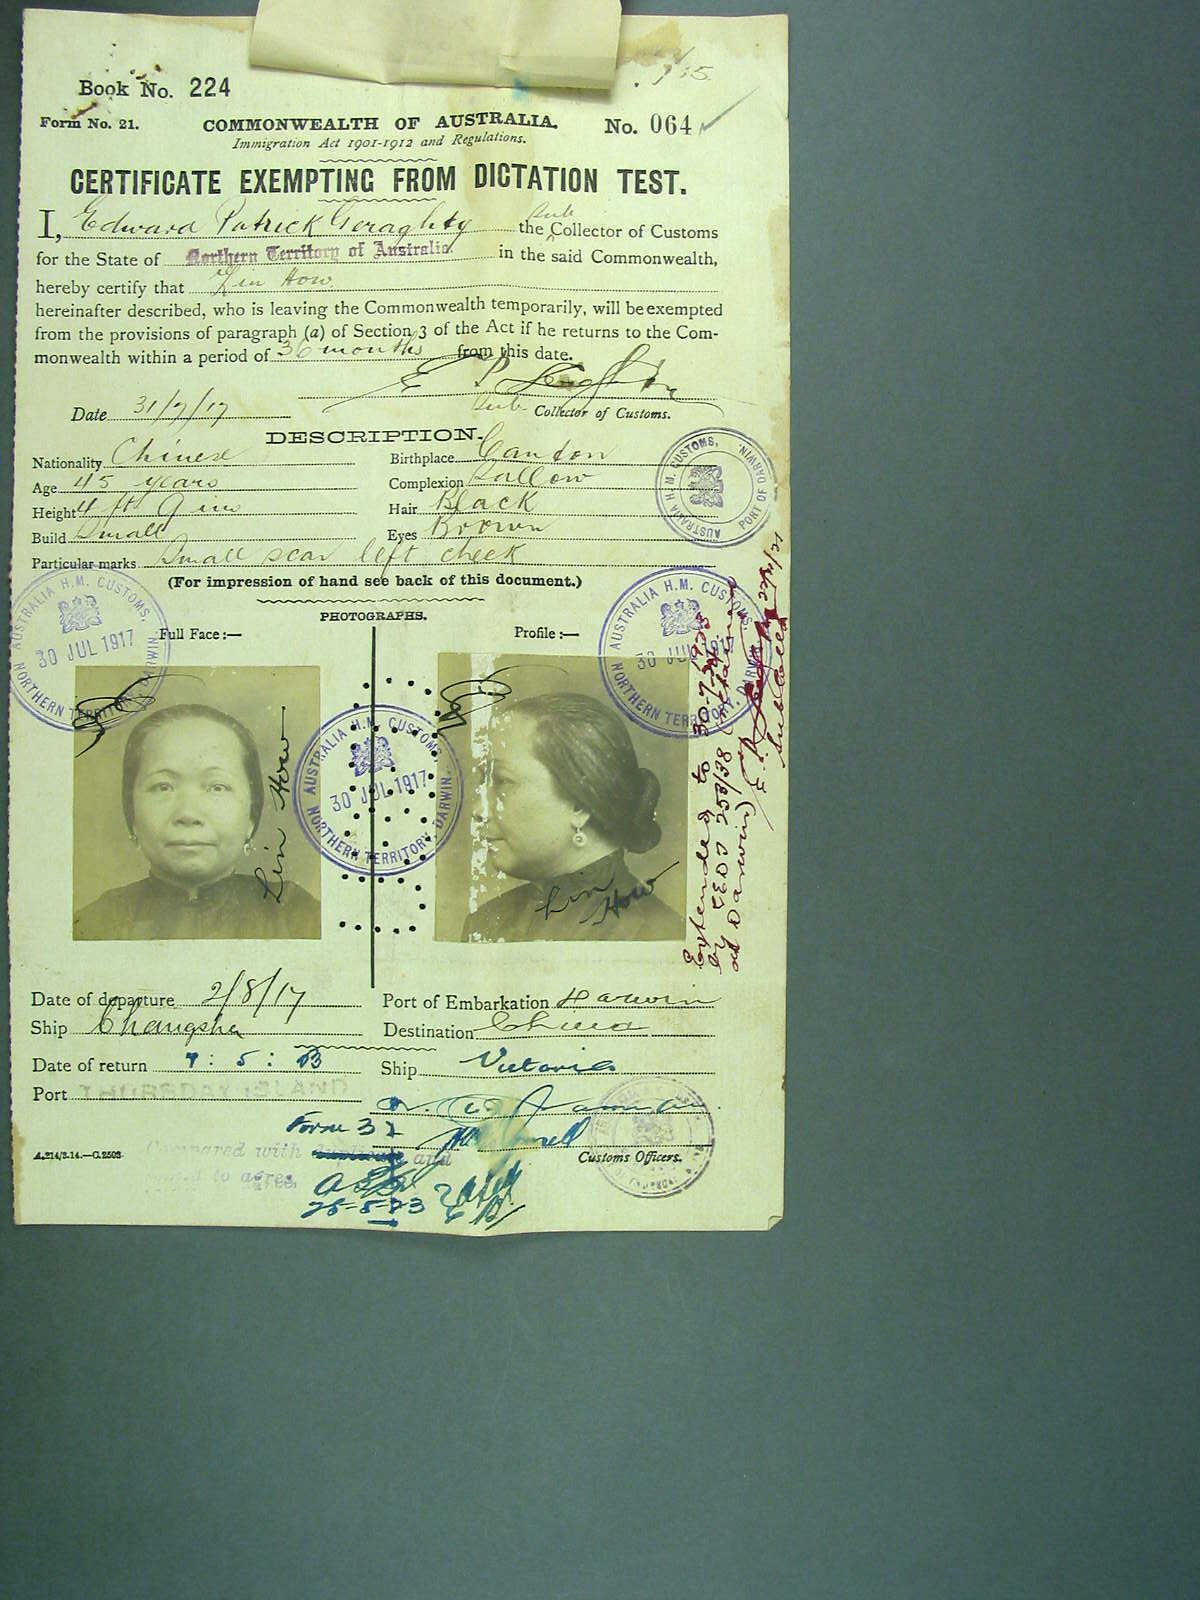 Book No. 224
Form No. 21.
COMMONWEALTH OF AUSTRALIA.
No. 064
Immigration Act 1901-1912 and Regulations.
CERTIFICATE EXEMPTING FROM DICTATION TEST.
I, Edward Patrick Geraghty the Sub Collector of Customs
for the State of Northern Territory of Australia in the said Commonwealth,
hereby certify that Lin How
hereinafter described, who is leaving the Commonwealth temporarily, will be exempted
from the provisions of paragraph (a) of Section 3 of the Act if he returns to the Com-
monwealth within a period of 36 months from this date.
Date 31/7/17
Sub Collector of Customs.
DESCRIPTION.
Nationality Chinese
Birthplace Canton
Age 45 years
Complexion Sallow
Height 4 ft 9 ins
Hair Black
Build Small
Eyes Brown
Particular marks Small scar left cheek
(For impression of hand see back of this document.)
AUSTRALIA H.M. CUSTOMS, PORT OF DARWIN.
PHOTOGRAPHS.
Full Face:—
Profile:—
AUSTRALIA H.M. CUSTOMS, 30 JUL 1917 NORTHERN TERRITORY, DARWIN.
AUSTRALIA H.M. CUSTOMS, 30 JUL 1917 NORTHERN TERRITORY, DARWIN.
AUSTRALIA H.M. CUSTOMS, 30 JUL 1917 NORTHERN TERRITORY, DARWIN.
Lin How
Lin How
Extended to 30-7-1923
by CEDT 253/38 (retained
at Darwin)
Sub Collector
Date of departure 2/8/17
Port of Embarkation Darwin
Ship Changsha
Destination China
Date of return 7:5:23
Ship Victoria
Port THURSDAY ISLAND
Form 32
Compared with and
found to agree.
A.214/3.14.—C.2503.
Customs Officers.
25-5-23